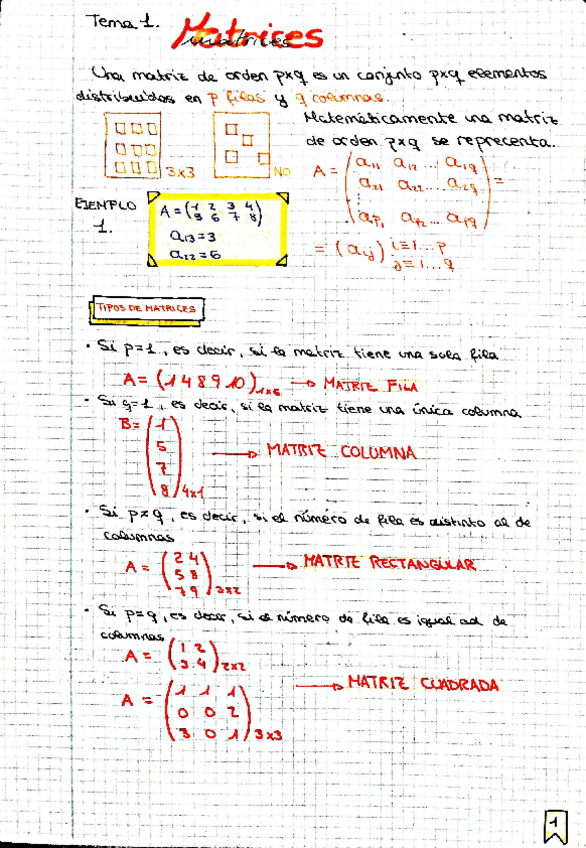 Tema 1.
Matrices
matrices
Una matriz de orden pxq es un conjunto pxq elementos
distribuidos en p filas y q columnas.
Matemáticamente una matriz
de orden pxq se represcenta..
3x3
NO
A = (a11 a12 ... a1q
a21 a22 ... a2q
⋮
ap1 ap2 ... apq) =
= (aij) i=1...p
j=1...q
EJEMPLO
1.
A = (1 2 3 4
5 6 7 8)
a13=3
a22=6
TIPOS DE MATRICES
· Si p=1, es decir, si la matriz tiene una sola fila
A = (1 4 8 9 10)1x6 → MATRIZ FILA
· Si q=1, es decir, si la matriz tiene una única columna
B = (1
5
7
8)4x1 → MATRIZ COLUMNA
· Si p≠q, es decir, si el número de fila es distinto al de
columnas
A = (2 4
5 8
7 9)3x2 → MATRIZ RECTANGULAR
· Si p=q, es decir, si el número de fila es igual al de
columnas
A = (1 2
3 4)2x2
→ MATRIZ CUADRADA
A = (1 1 1
0 0 2
3 0 1)3x3
1